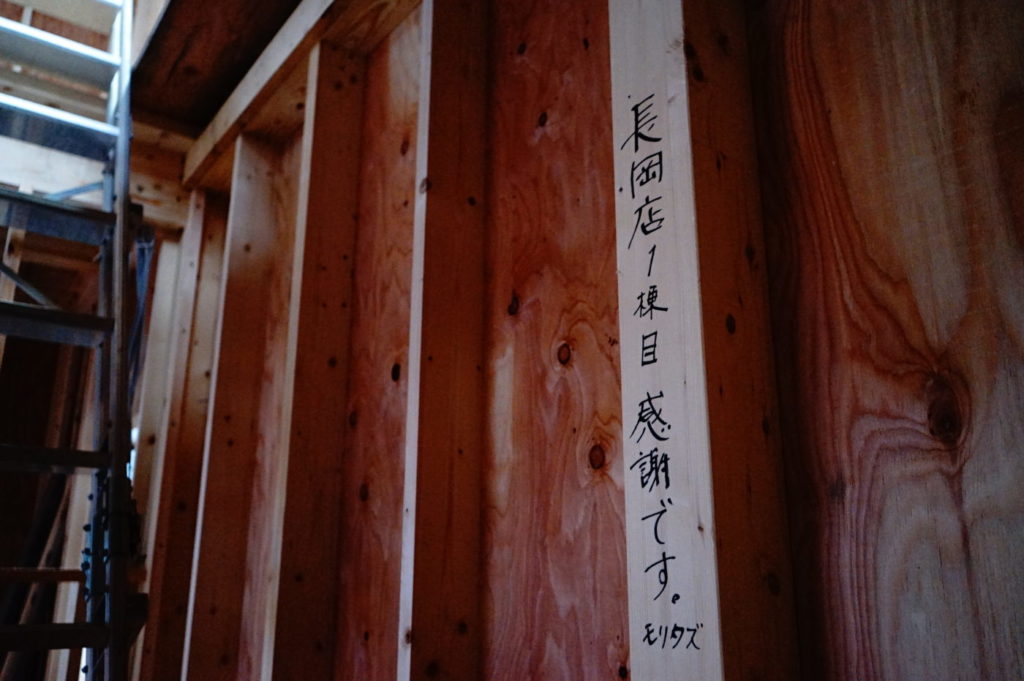 長岡店1棟目 感謝です。
モリタズ